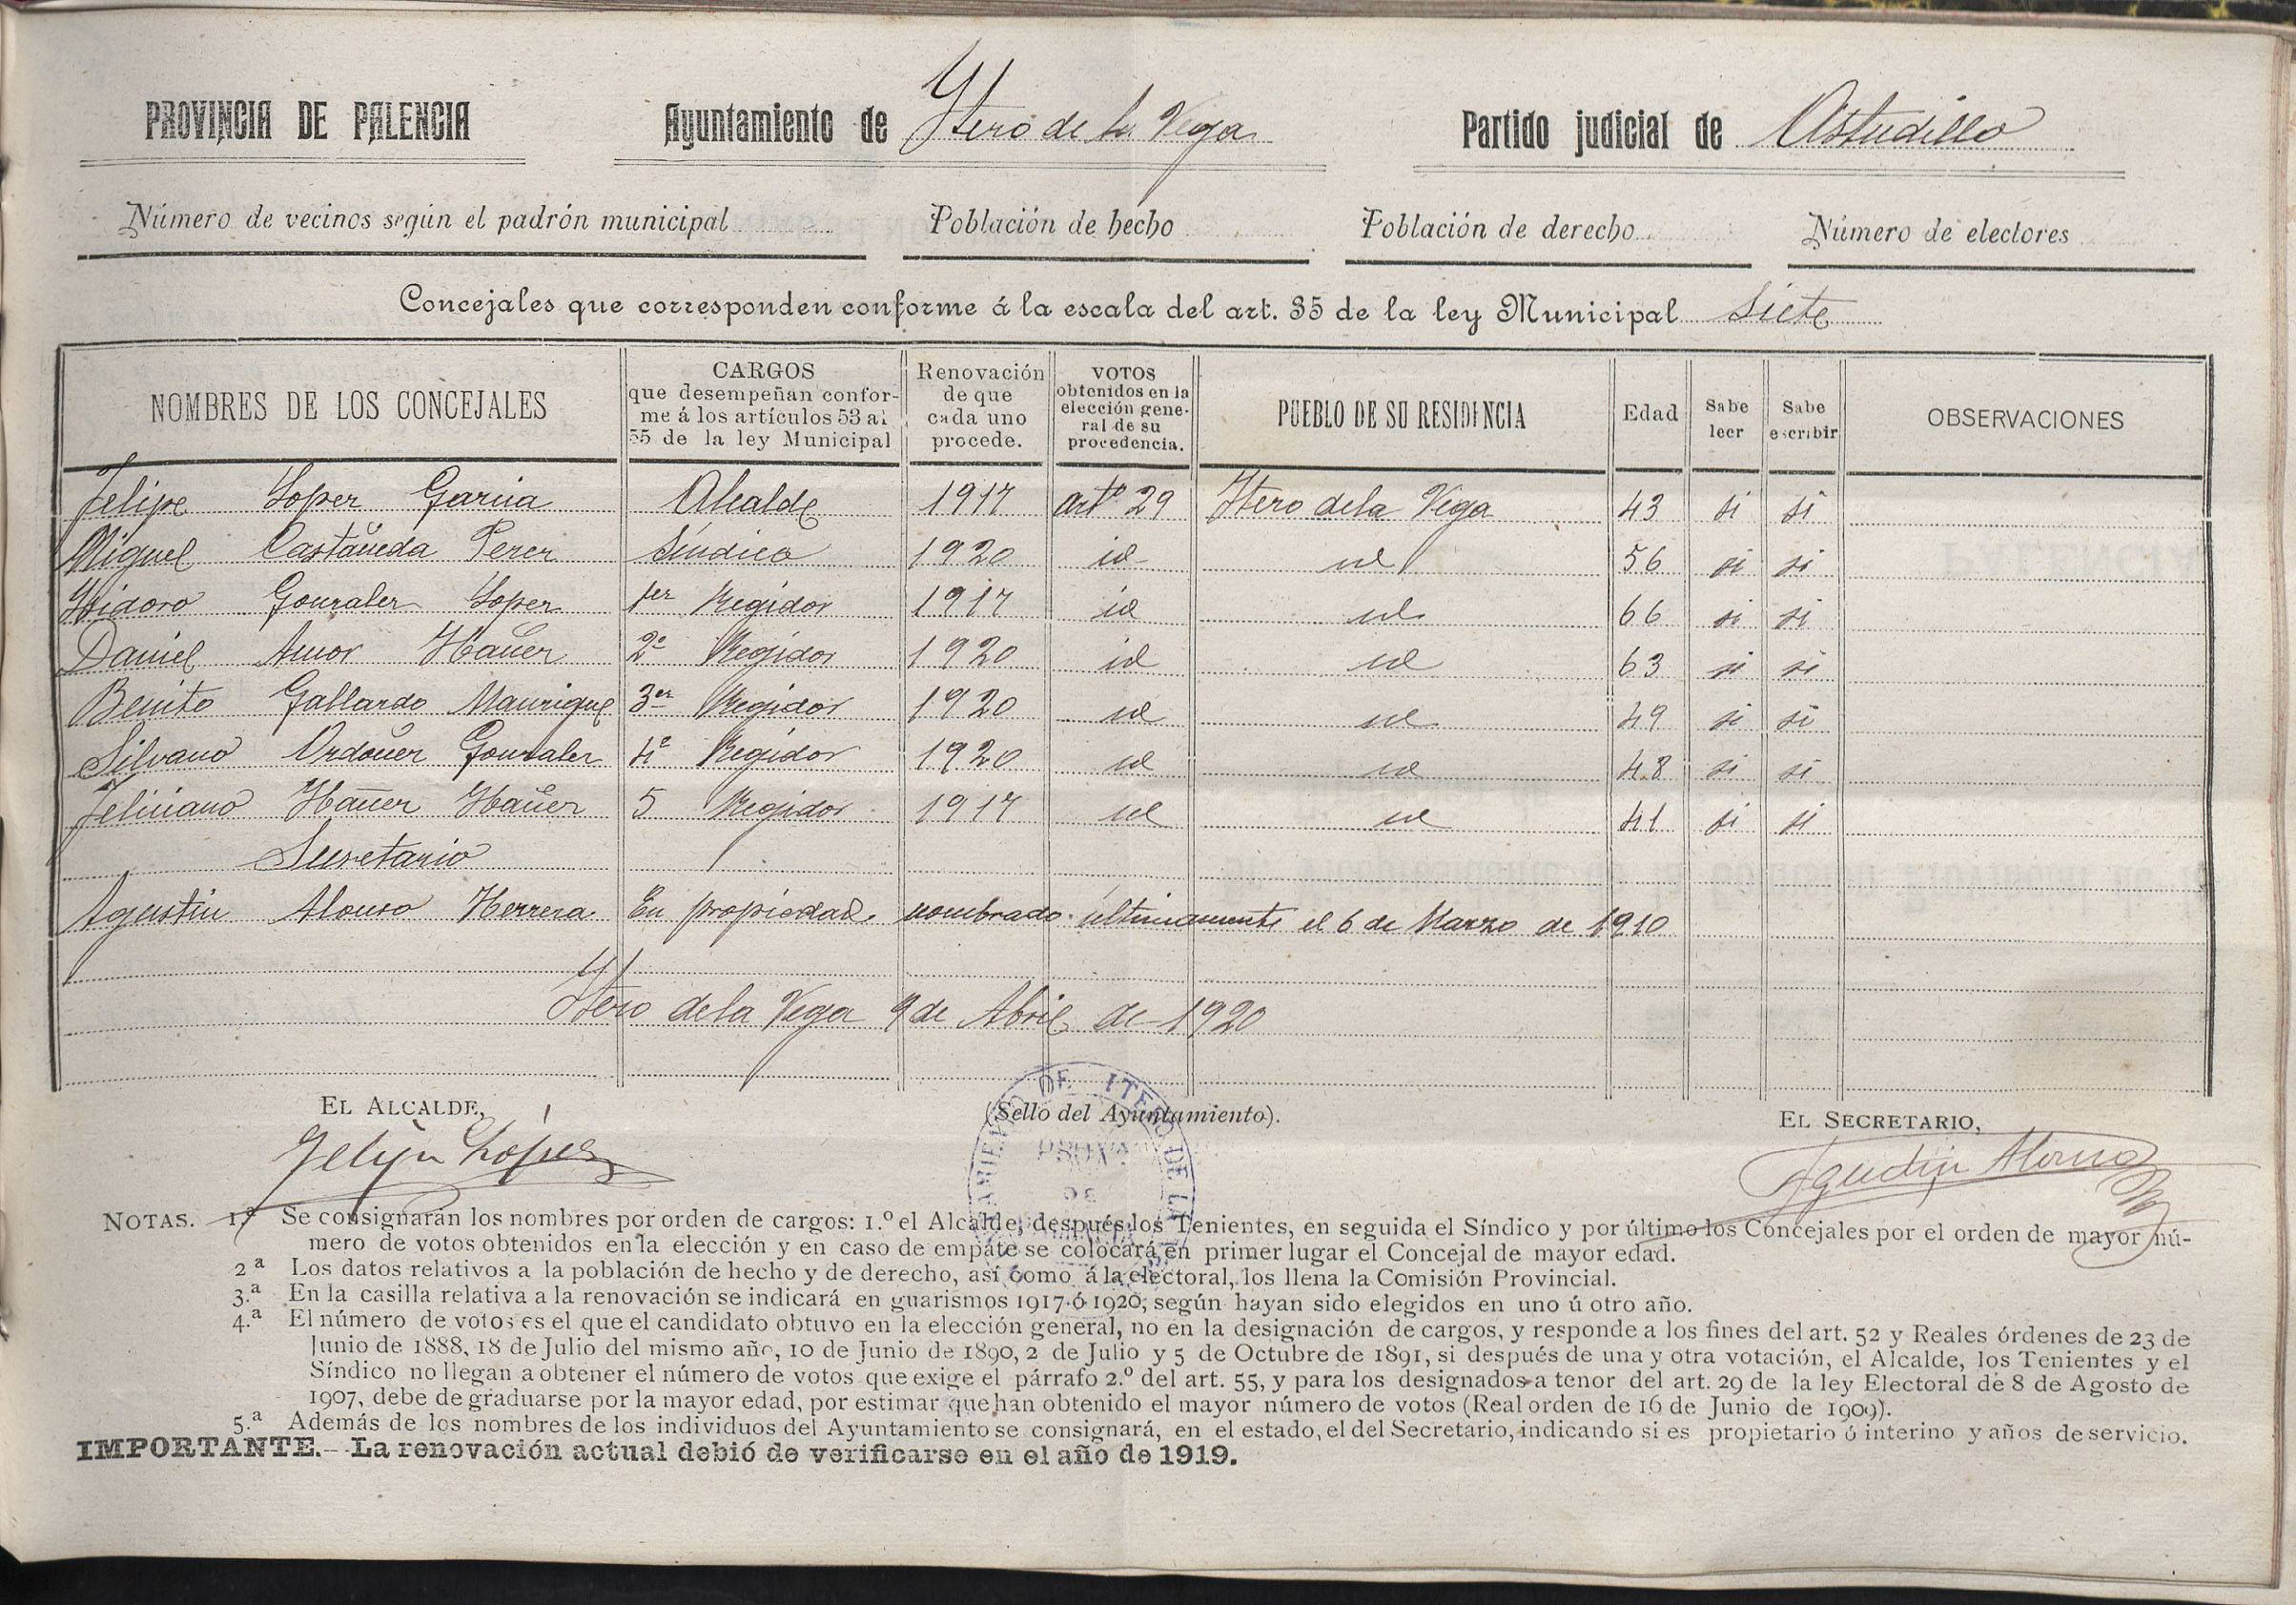 PROVINCIA DE PALENCIA Ayuntamiento de Ytero de la Vega Partido judicial de Astudillo
Número de vecinos según el padrón municipal Población de hecho Población de derecho Número de electores
Concejales que corresponden conforme á la escala del art. 35 de la ley Municipal Siete
NOMBRES DE LOS CONCEJALES CARGOS que desempeñan confor-me á los artículos 53 al 55 de la ley Municipal Renovación de que cada uno procede. VOTOS obtenidos en la elección gene-ral de su procedencia. PUEBLO DE SU RESIDENCIA Edad Sabe leer Sabe escribir OBSERVACIONES
Felipe Lopez Garcia Alcalde 1917 artº 29 Ytero dela Vega 43 si si
Miguel Castañeda Perez Síndico 1920 id id 56 si si
Ysidoro Gonzalez Lopez 1er Regidor 1917 id id 66 si si
Daniel Amor Ybañez 2º Regidor 1920 id id 63 si si
Benito Gallardo Manrique 3er Regidor 1920 id id 49 si si
Silvano Ordoñez Gonzalez 4º Regidor 1920 id id 48 si si
Feliciano Ybañez Ybañez 5 Regidor 1917 id id 41 si si
Secretario
Agustin Alonso Herrera En propiedad nombrado ultimamente el 6 de Marzo de 1910
Ytero dela Vega 9 de Abril de 1920
EL ALCALDE, (Sello del Ayuntamiento). EL SECRETARIO,
Felipe López Agustín Alonso
NOTAS. 1.ª Se consignarán los nombres por orden de cargos: 1.º el Alcalde, después los Tenientes, en seguida el Síndico y por último los Concejales por el orden de mayor nú-
mero de votos obtenidos en la elección y en caso de empate se colocará en primer lugar el Concejal de mayor edad.
2ª Los datos relativos a la población de hecho y de derecho, así como á la electoral, los llena la Comisión Provincial.
3.ª En la casilla relativa a la renovación se indicará en guarismos 1917 ó 1920, según hayan sido elegidos en uno ú otro año.
4.ª El número de votos es el que el candidato obtuvo en la elección general, no en la designación de cargos, y responde a los fines del art. 52 y Reales órdenes de 23 de
Junio de 1888, 18 de Julio del mismo año, 10 de Junio de 1890, 2 de Julio y 5 de Octubre de 1891, si después de una y otra votación, el Alcalde, los Tenientes y el
Síndico no llegan a obtener el número de votos que exige el párrafo 2.º del art. 55, y para los designados a tenor del art. 29 de la ley Electoral de 8 de Agosto de
1907, debe de graduarse por la mayor edad, por estimar que han obtenido el mayor número de votos (Real orden de 16 de Junio de 1909).
5.ª Además de los nombres de los individuos del Ayuntamiento se consignará, en el estado, el del Secretario, indicando si es propietario ó interino y años de servicio.
IMPORTANTE.- La renovación actual debió de verificarse en el año de 1919.